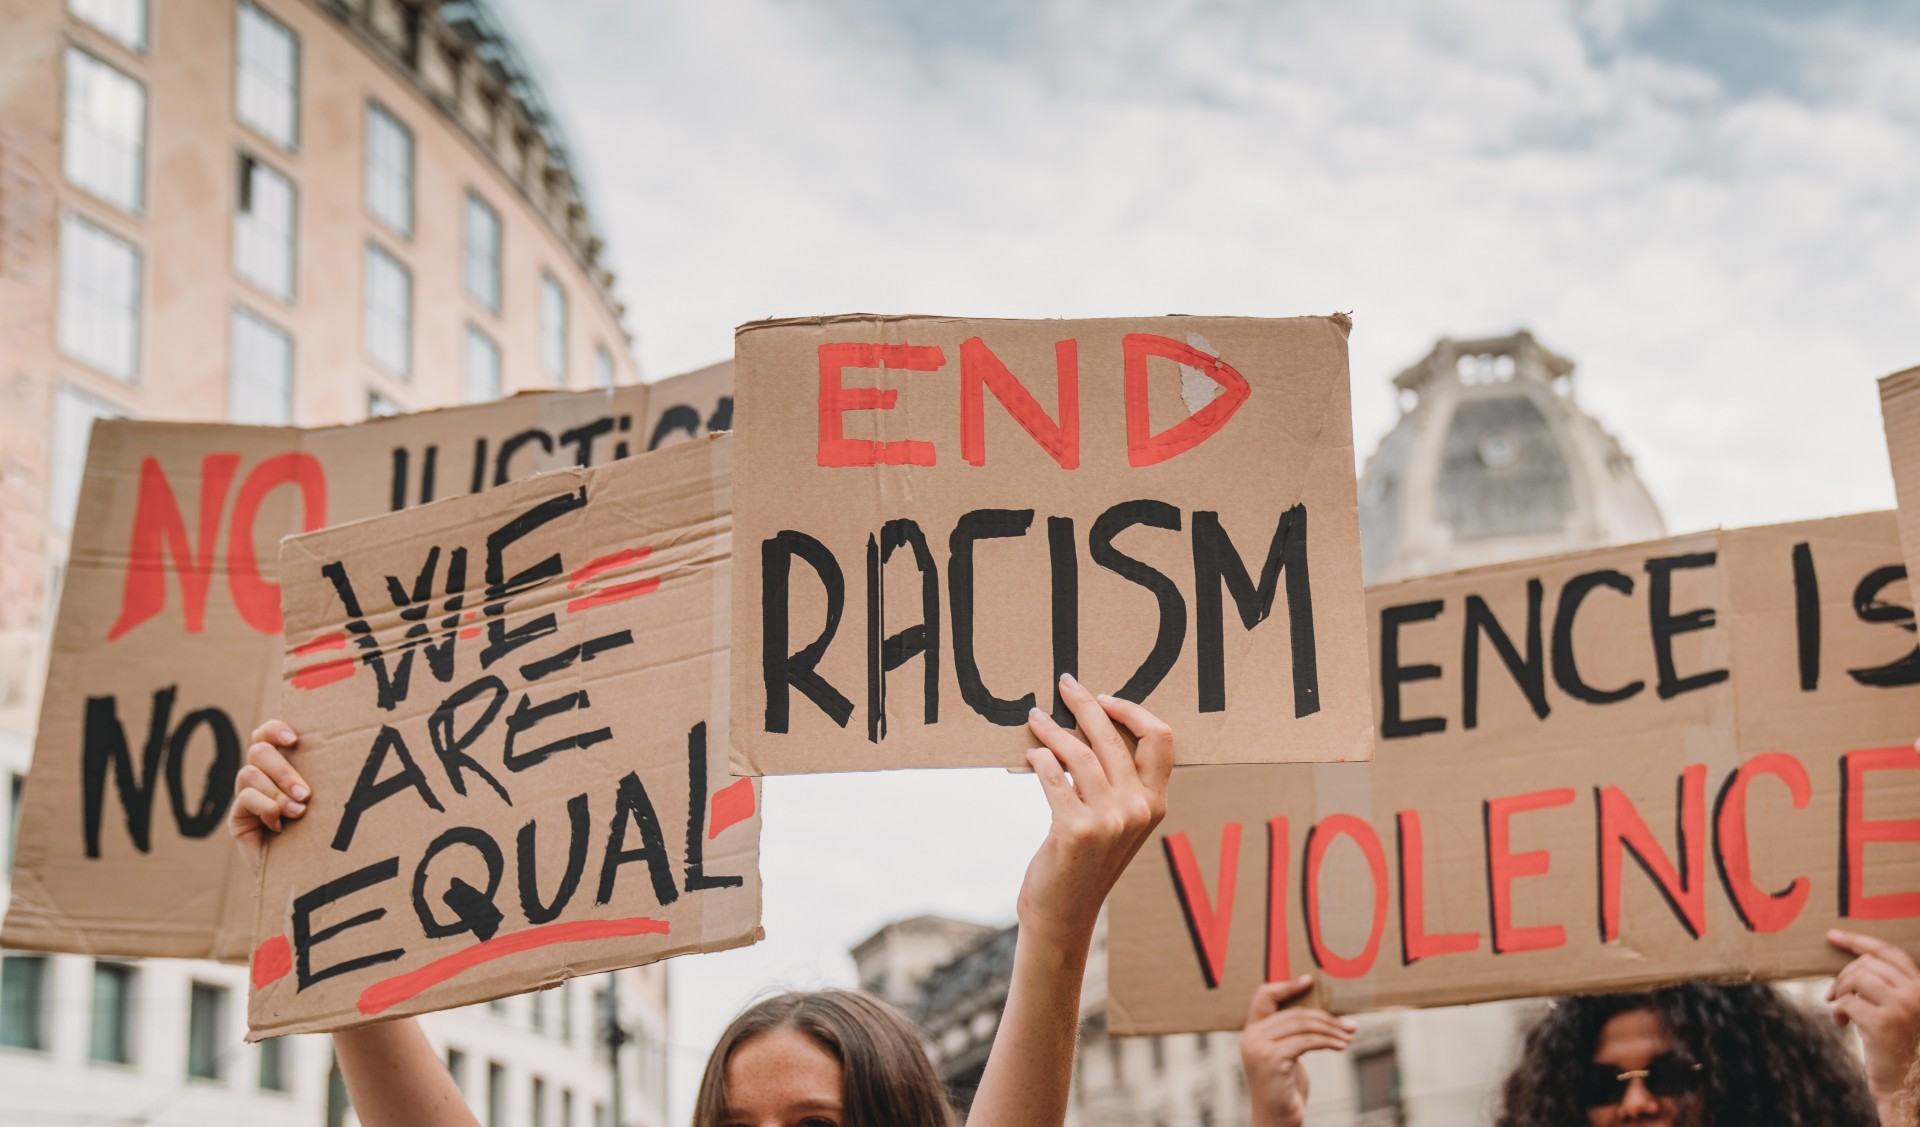 NO JUSTIC
NO
WE
ARE
EQUAL
END
RACISM
ENCE IS
VIOLENCE